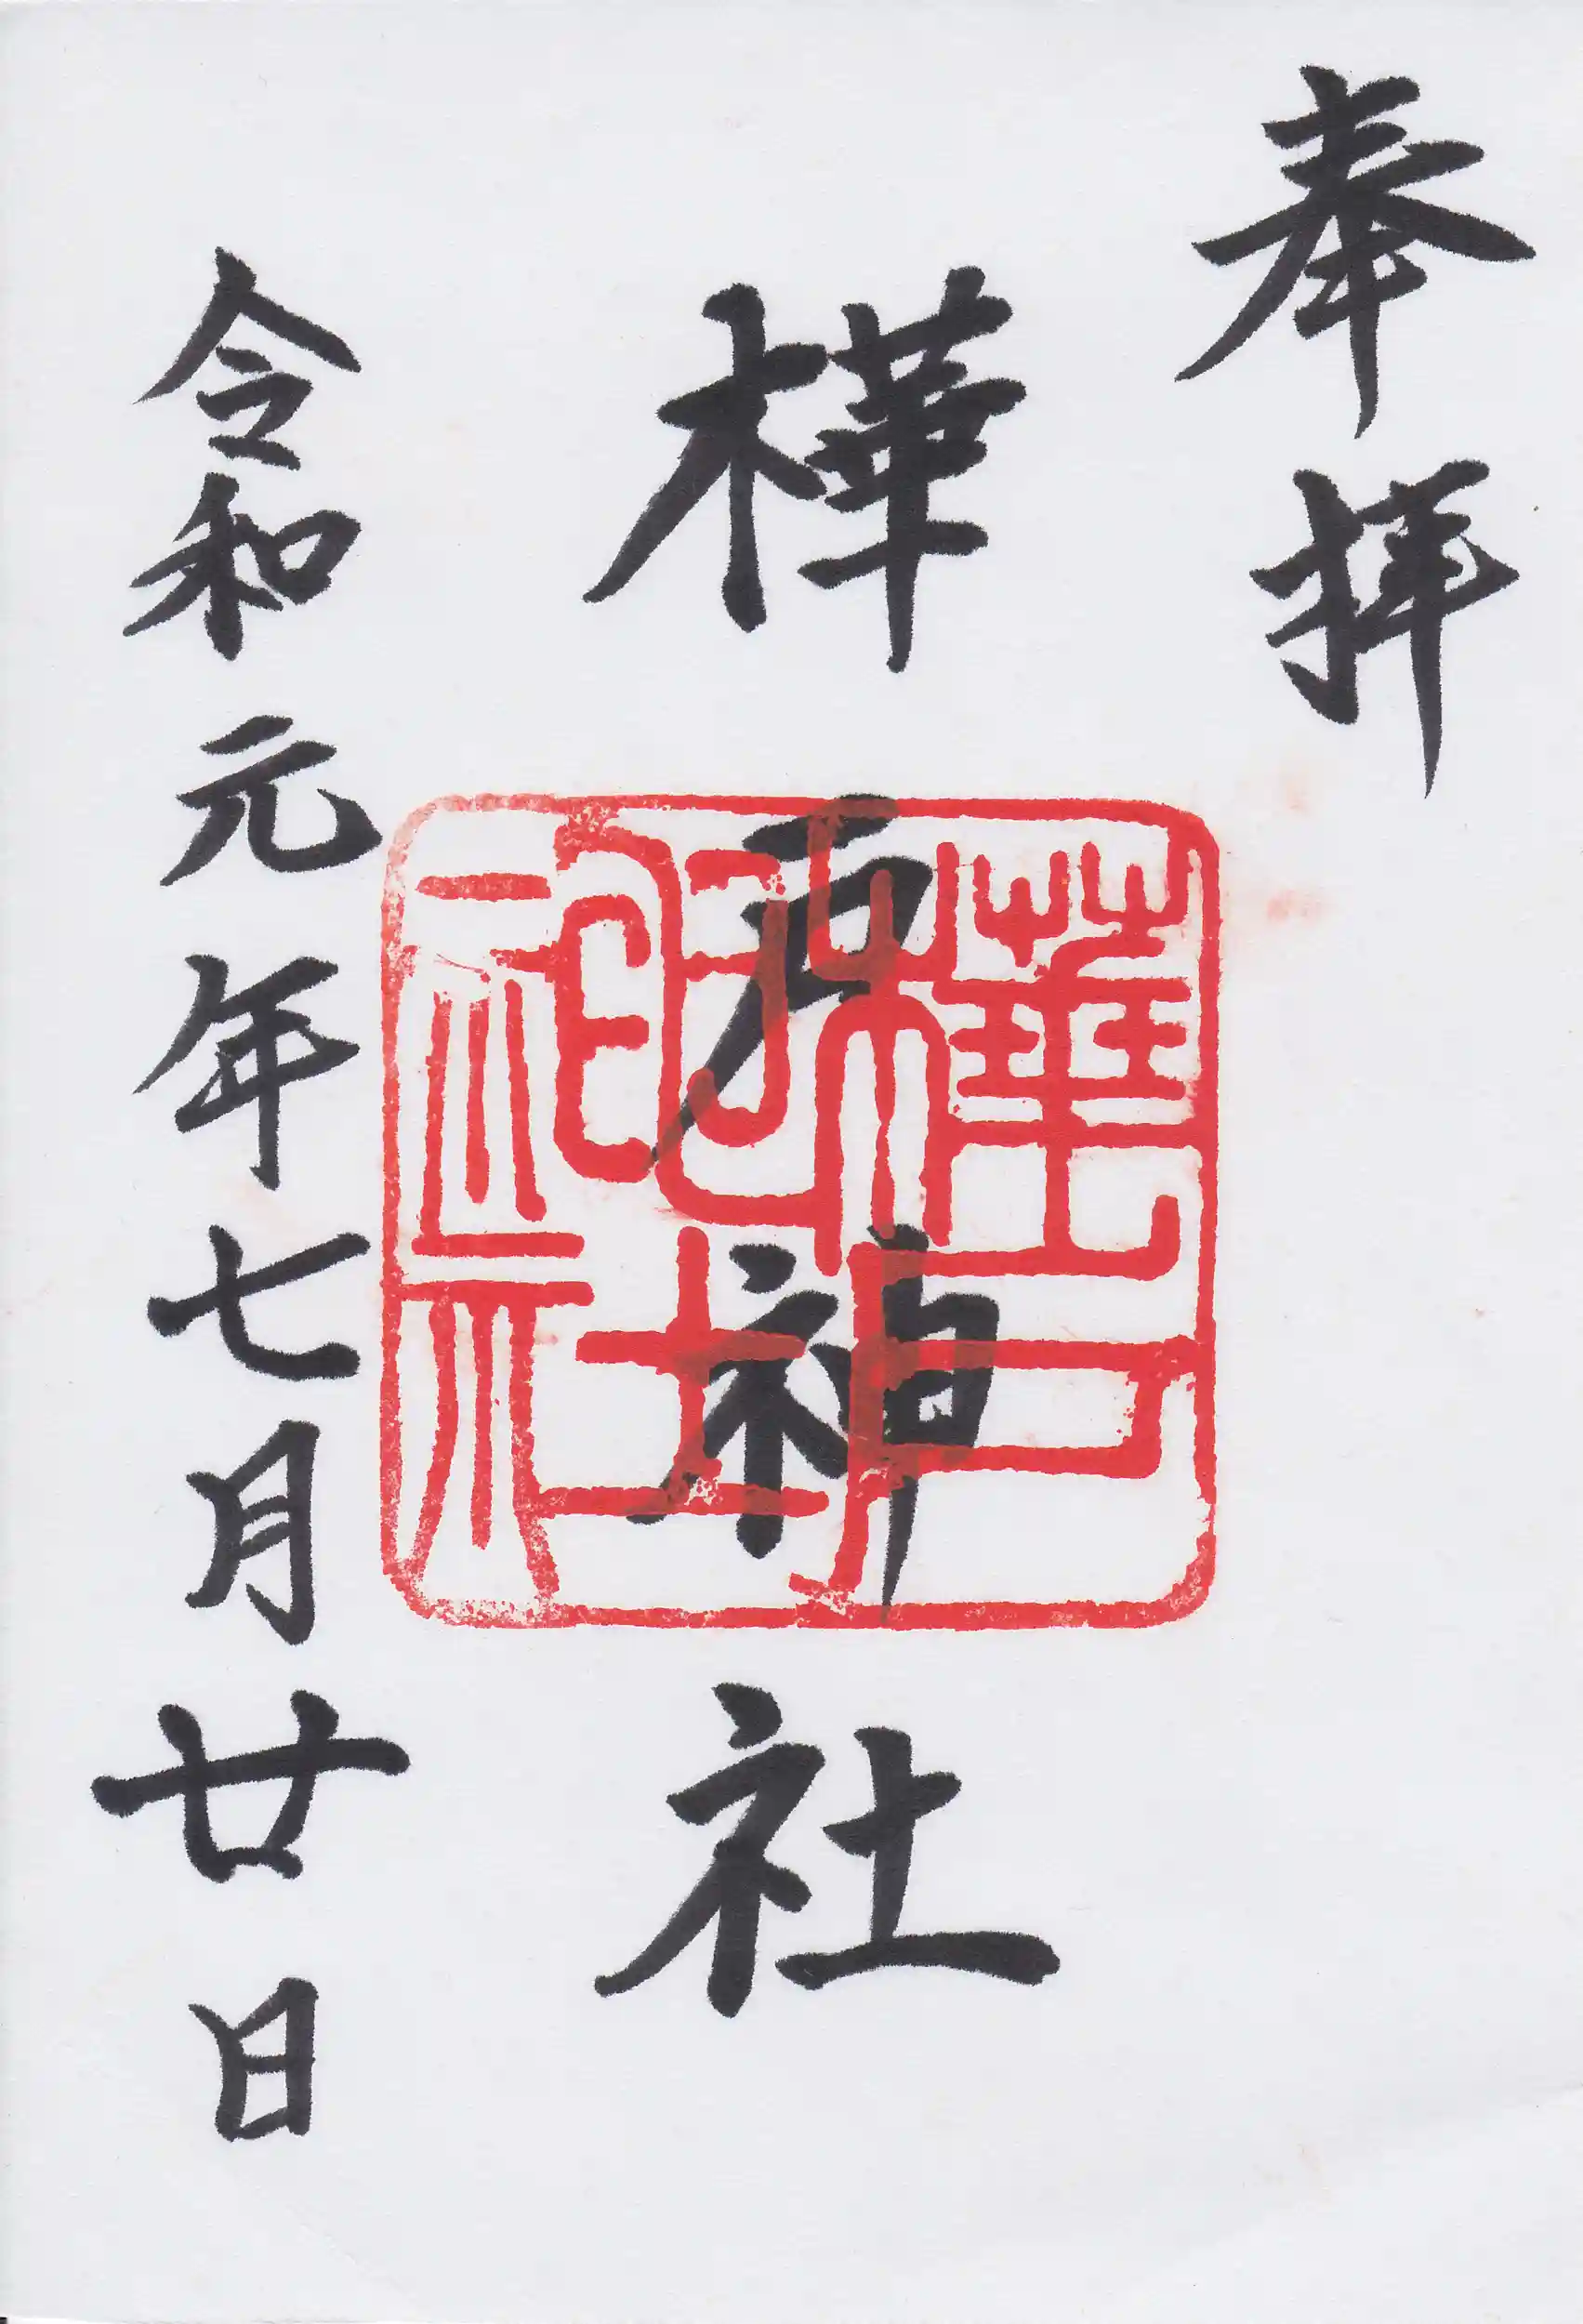 奉拝
樺戸神社
樺戸神社
令和元年七月廿日